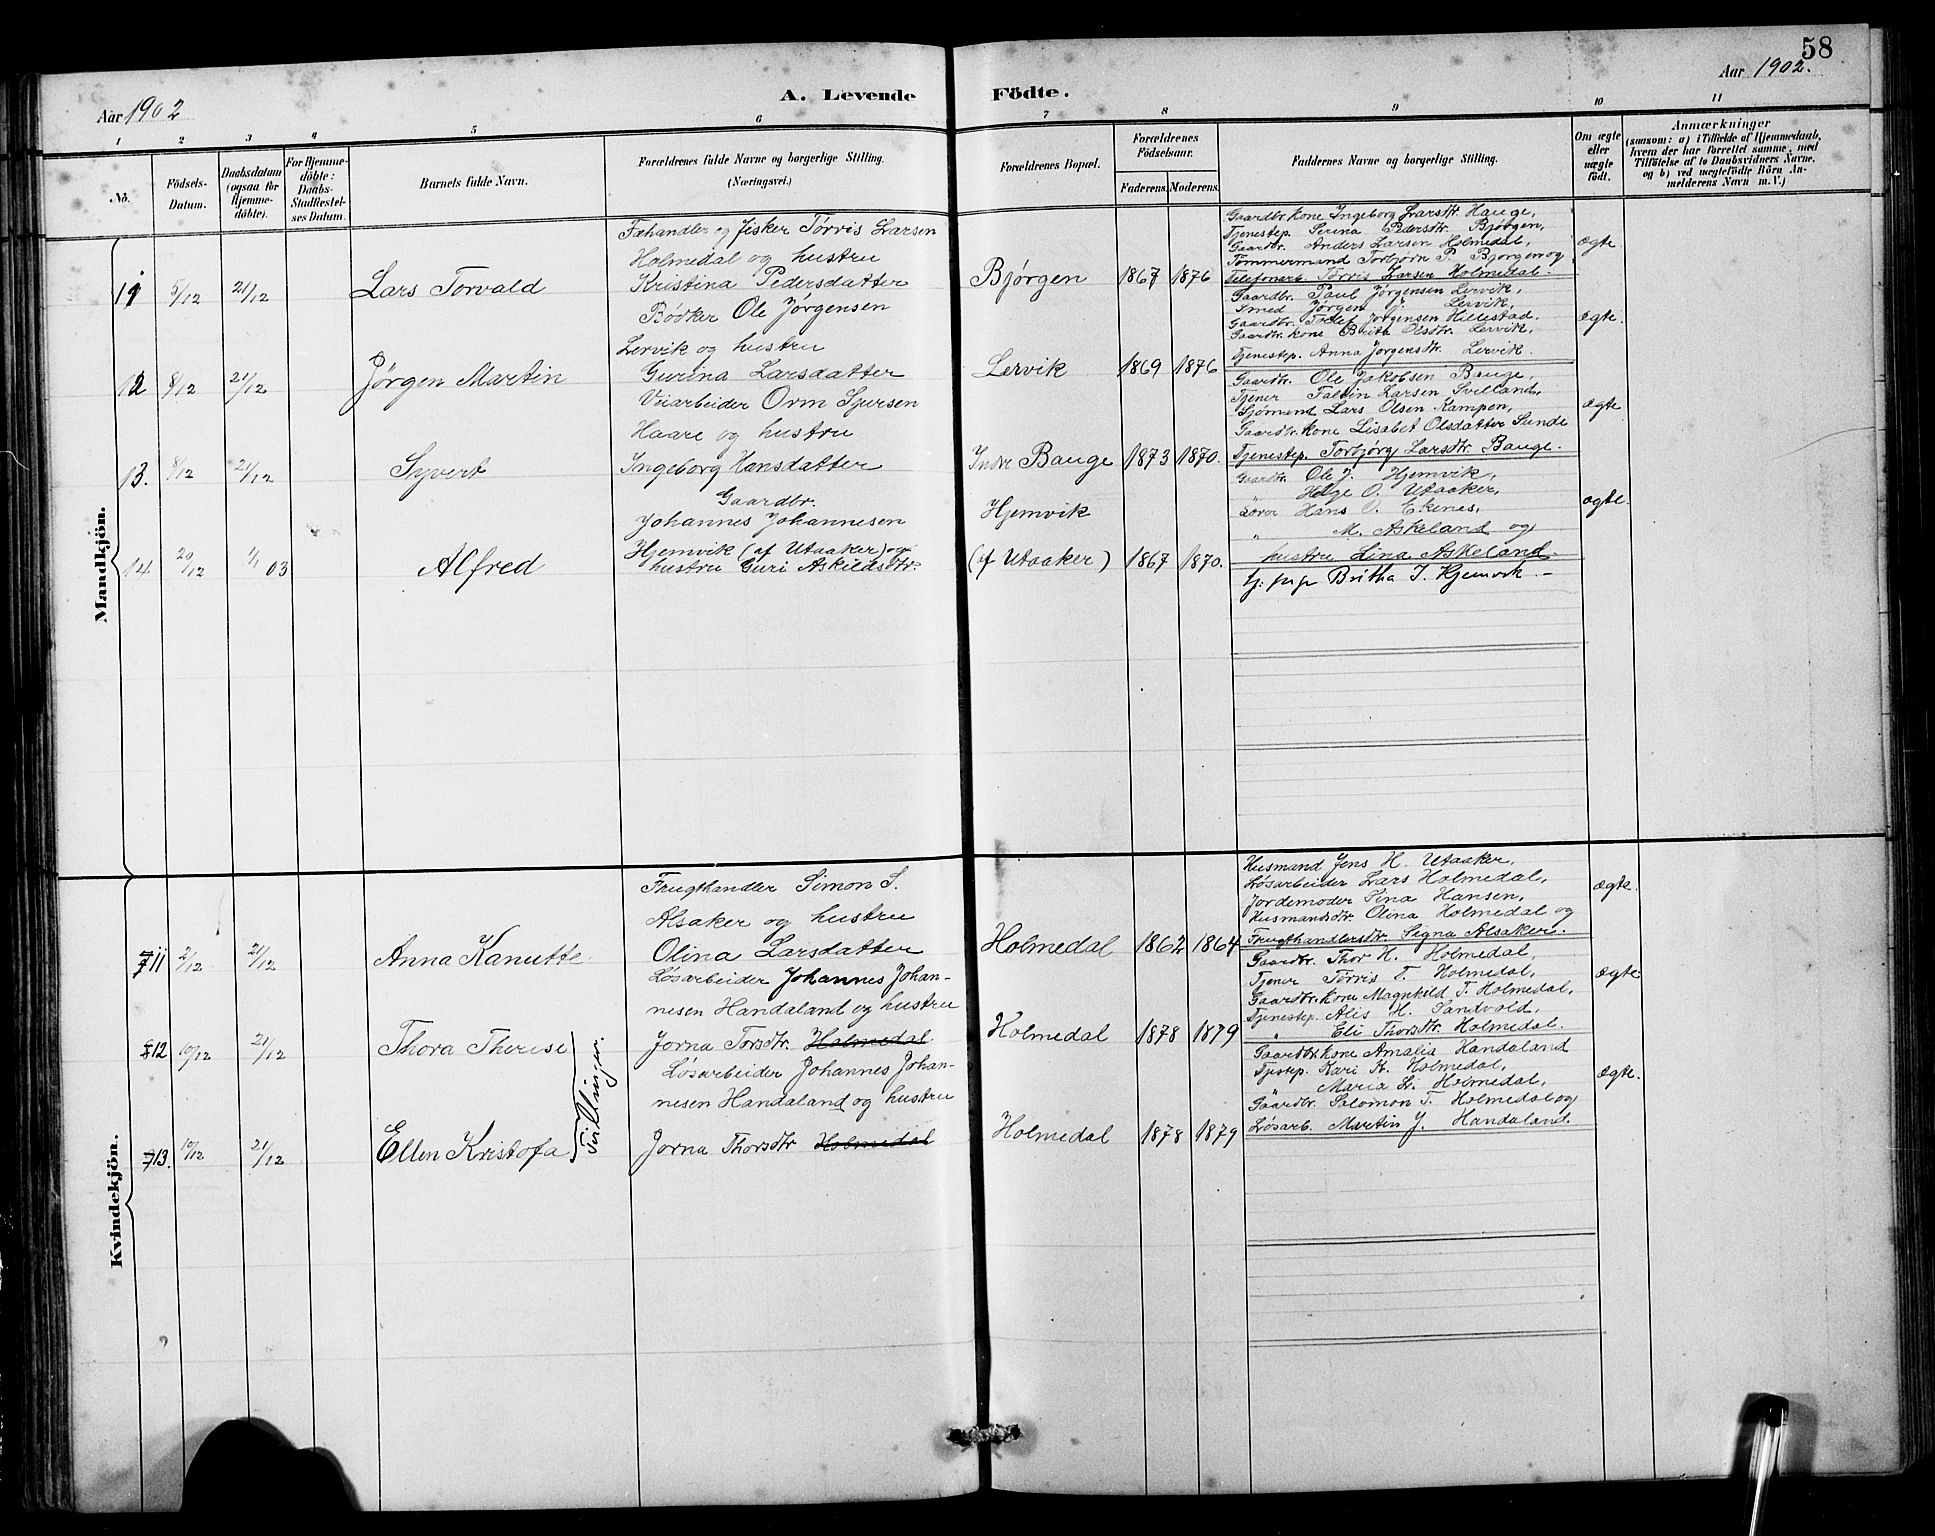 58
Aar 1902
A. Levende
Födte.
Aar 1902.
1 2 3 4 5 6 7 8 9 10 11
No.
Födsels-
Datum.
Daabsdatum
(ogsaa for
Hjemme-
döbte).
For Hjemme-
döbte:
Daabs-
Stadfæstel-
ses Datum.
Barnets fulde Navn.
Forældrenes fulde Navne og borgerlige Stilling.
(Næringsvei.)
Forældrenes Bopæl.
Forældrenes
Födselsaar.
Faderens. Moderens.
Faddernes Navne og borgerlige Stilling.
Om ægte
eller
uægte
født.
Anmærkninger
(saasom: a) i Tilfælde af Hjemmedaab,
hvem der har forrettet samme, med
Tilföielse af to Daabsvidners Navne,
og b) ved uægtefödte Börn An-
melderens Navn m. V.)
Mandkjön.
11 5/12 21/12 Lars Torvald
Fæhandler og fisker Tørris Larsen
Holmedal og hustru
Kristina Pedersdatter
Bjørgen 1867 1876
Gaardbr. kone Ingeborg Larsdtr. Hauge,
Tjenestep. Serina Pedersdtr. Bjørgen,
Gaardbr. Anders Larsen Holmedal,
Tømmermand Torbjørn P. Bjørgen og
Telefonarb. Tørris Larsen Holmedal.
ægte
12 8/12 21/12 Jørgen Martin
Bødker Ole Jørgensen
Lervik og hustru
Gurina Larsdatter
Lervik 1869 1876
Gaardbr. Paul Jørgensen Lervik,
Smed Jørgen J. Lervik,
Gaardbr. Tollef Jørgensen Hillestad,
Gaardbr. kone Brita Olsdtr. Lervik,
Tjenestep. Anna Jørgensdtr. Lervik.
ægte.
13. 8/12 21/12 Syvert
Veiarbeider Orm Sjursen
Haare og hustru
Ingeborg Hansdatter
Indre Bauge 1873 1870.
Gaardbr. Ole Jakobsen Bauge,
Tjener Falvin Larsen Svilland,
Sjømand Lars Olsen Kampen,
Gaardbr. kone Lisabet Olsdatter Sunde
Tjenestep. Torbjørg Larsdtr. Bauge.
ægte
14 20/12 4/1 03 Alfred
Gaardbr.
Johannes Johannesen
Hjemvik (af Utaaker) og
hustru Guri Askildsdtr.
Hjemvik
(af Utaaker) 1867 1870.
Gaardbr. Ole J. Hjemvik,
" Helge O. Utaaker,
Lærer Hans O. Ekenes,
" M. Askeland og
hustru Lina Askeland.
tj. pige Britha J. Hjemvik.
ægte.
Kvindekjön.
11 2/12 21/12 Anna Kanutte
Frugthandler Simon S.
Alsaker og hustru
Olina Larsdatter
Holmedal 1862 1864
Husmand Jens H. Utaaker,
Løsarbeider Lars Holmedal,
Jordemoder Tina Hansen,
Husmandsdtr. Olina Holmedal og
Frugthandlersdtr. Signa Alsaker.
ægte.
12 10/12 21/12 Thora Therese
Løsarbeider Johannes Johan-
nesen Handaland og hustru
Jorna Torsdtr. Holmedal.
Holmedal 1878 1879
Gaardbr. Thor K. Holmedal,
Tjener Tørris T. Holmedal,
Gaardbr. kone Magnhild T. Holmedal,
Tjenestep. Alis H. Sandvold,
" Eli Thorsdtr. Holmedal.
ægte
Tvillinger.
13. 10/12 21/12 Ellen Kristofa
Løsarbeider Johannes Johan-
nesen Handaland og hustru
Jorna Thorsdtr Holmedal
Holmedal 1878 1879
Gaardbr. kone Amalia Handaland
Tjstep. Kari K. Holmedal,
" Maria L. Holmedal,
Gaardbr. Salomon T. Holmedal og
Løsarb. Martin J. Handaland.
ægte.